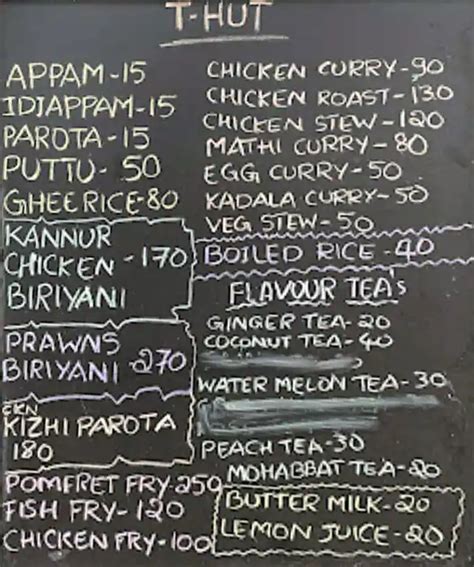 T-HUT
APPAM-15
IDIAPPAM-15
PAROTA-15
PUTTU- 50
GHEE RICE-80
KANNUR
CHICKEN -170
BIRIYANI
PRAWNS
BIRIYANI 270
CKN
KIZHI PAROTA
180
POMFRET FRY-250
FISH FRY- 120
CHICKEN FRY-100
CHICKEN CURRY-90
CHICKEN ROAST-130
CHICKEN STEW-120
MATHI CURRY- 80
EGG CURRY-50
KADALA CURRY-50
VEG STEW-50
BOILED RICE -40
FLAVOUR TEAs
GINGER TEA-20
COCONUT TEA-40
WATER MELON TEA-30
PEACH TEA-30
MOHABBAT TEA-20
BUTTER MILK-20
LEMON JUICE-20